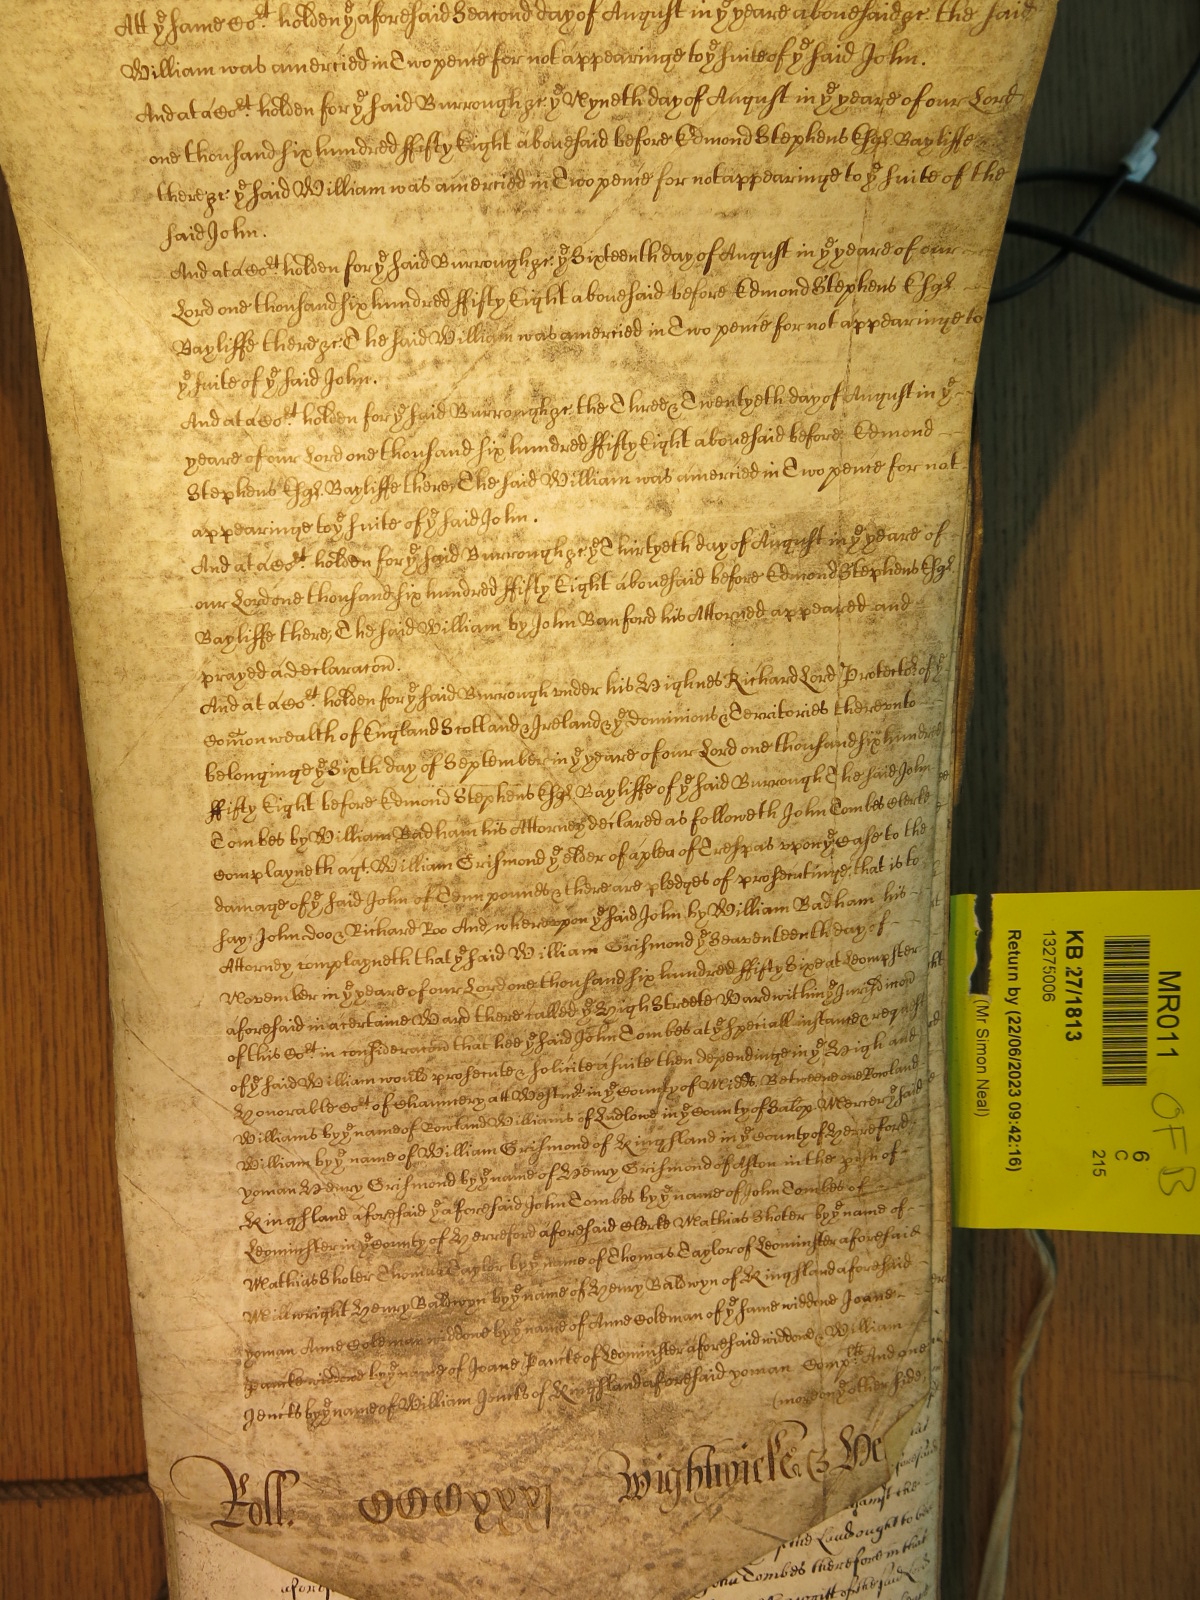 Att yͤ same Coʳᵗ. holden yͤ aforesaid Seacond day of August in yͤ yeare abouesaid &c. the said
William was amercied in Two pence for not appearinge to yͤ suite of yͤ said John.
And at a Coʳᵗ. holden for yͤ said Burrough &c. yͤ Nyneth day of August in yͤ yeare of our Lord
one thousand six hundred ffifty Eight abouesaid before Edmond Stephens Esqʳ. Bayliffe
there &c. yͤ said William was amercied in Two pence for not appearinge to yͤ suite of the
said John.
And at a Coʳᵗ. holden for yͤ said Burrough &c. yͤ Sixteenth day of August in yͤ yeare of our
Lord one thousand six hundred ffifty Eight abouesaid before Edmond Stephens Esqʳ.
Bayliffe there &c. The said William was amercied in Two pence for not appearinge to
yͤ suite of yͤ said John.
And at a Coʳᵗ. holden for yͤ said Burrough &c. the Three & Twentyeth day of August in yͤ
yeare of our Lord one thousand six hundred ffifty Eight abouesaid before Edmond
Stephens Esqʳ. Bayliffe there, The said William was amercied in Two pence for not
appearinge to yͤ suite of yͤ said John.
And at a Coʳᵗ. holden for yͤ said Burrough &c. yͤ Thirtyeth day of August in yͤ yeare of
our Lord one thousand six hundred ffifty Eight abouesaid before Edmond Stephens Esqʳ.
Bayliffe there, The said William by John Banford his Attorney appeared and
prayed a declaracon̄.
And at a Coʳᵗ. holden for yͤ said Burrough vnder his Highnes Richard Lord Protector of yͤ
Com̄onwealth of England Scotland & Ireland & yͤ dominions & Territories therevnto
belonginge yͤ Sixth day of September in yͤ yeare of our Lord one thousand six hundred
ffifty Eight before Edmond Stephens Esqʳ. Bayliffe of yͤ said Burrough The said John
Tombes by William Badham his Attorney declared as followeth John Tombes Clerke
Complayneth agᵗ. William Grismond yͤ elder of a plea of Trespas vpon yͤ Case to the
damage of yͤ said John of Tenn pounds & there are pledges of prosecutinge, that is to
say, John doo & Richard Roo And wherevpon yͤ said John by William Badham his
Attorney complayneth that yͤ said William Grismond yͤ Seaventeenth day of
November in yͤ yeare of our Lord one thousand six hundred ffifty Sixe at Leompster
aforesaid in a certaine Ward there called yͤ High Streete Ward within yͤ Jurisdiccon̄
of this Coʳᵗ in consideracon̄ that hee yͤ said John Tombes at yͤ speciall instance & request
of yͤ said William would prosecute & solicite a suite then dependinge in yͤ High and
Honorable Coʳᵗ of Chauncery att Westmʳ in yͤ County of Midds. Betweene one Rowland
Williams by yͤ name of Rowland Williams of Ludlowe in yͤ County of Salop Mercer yͤ said
William by yͤ name of William Grismond of Kingsland in yͤ County of Herreford
yoman Henry Grismond by yͤ name of Henry Grismond of Aston in the pish of
Kingsland aforesaid yͤ aforesaid John Tombes by yͤ name of John Tombes of
Leominster in yͤ County of Herreford aforesaid Clerke Mathias Shoter by yͤ name of
Mathias Shoter Thomas Taylor by yͤ name of Thomas Taylor of Leominster aforesaid
Millwright Henry Baldwyn by yͤ name of Henry Baldwyn of Kingsland aforesaid
yoman Anne Coleman widdowe by yͤ name of Anne Coleman of yͤ same widdowe Joane
widdowe by yͤ name of Joane of Leominster aforesaid widdowe & William
Jencks by yͤ name of William Jencks of Kingsland aforesaid yoman Compˡᵗˢ. And one
(more on yͤ other side
Roll. CCCCxxxj Wightwicke & He
against the
Land ought to be
John Tombes therefore in that
MR011
KB 27/1813
13275006
6
C
215
Return by (22/06/2023 09:42:16)
(Mr Simon Neal)
OF B